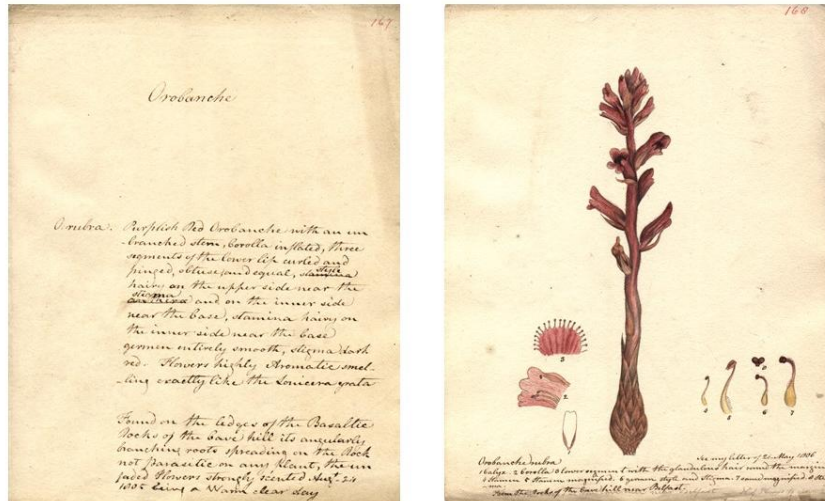 167
Orobanche
O. rubra. Purplish Red Orobanche with an un
-branched stem, Corolla inflated, three
segments of the lower lip curled and
equal, style stamina
hairy on the upper side near the
stigma and on the inner side
near the base, stamina hairy on
the inner side near the base
germen entirely smooth, stigma dark
red. Flowers highly Aromatic smel-
-ling exactly like the Lonicera grata
Found on the ledges of the Basaltic
Rocks of the Cave hill its angularly
branching roots spreading on the Rock
not parasitic on any plant, the un
faded flowers strongly scented Augt. 24
1805 being a Warm clear day
168
3
2
1
4
5
8
6
7
See my letter of 21 May 1806
Orobanche rubra
1 Calyx. 2 Corolla 3 lower segment with the glandulous hair round the margin
4 Stamen 5 Stamen magnified. 6 germen style and Stigma. 7 same magnified. 8
From the rocks of the Cave hill near Belfast.